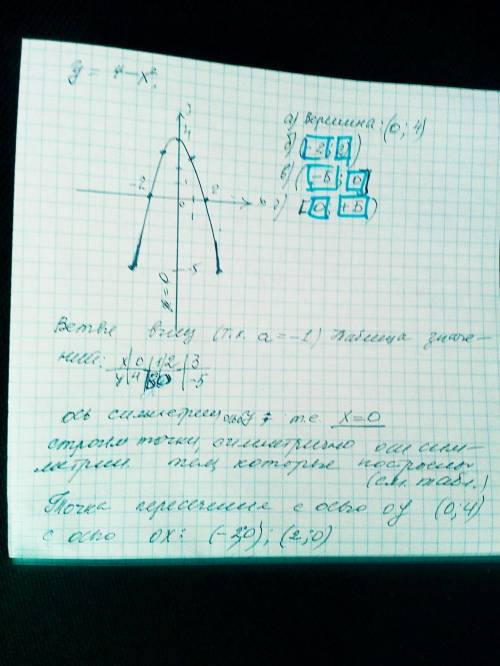 y = 4 - x²
y
4
а) Вершина: (0; 4)
б) (-2; 2)
в) (-Б; 0]
г) [0; +Б)
-2
2
0
x
-5
x=0
Ветви вниз (т.к. a = -1) Таблица значе-
ний:
x | 0 | 1 | 2 | 3
y | 4 | 3 | 0 | -5
ось симметрии y т.е. x=0
строим точки, симметрично оси сим-
метрии тем которые построены
(см. табл.)
Точка пересечения с осью оу (0; 4)
с осью ох: (-2;0); (2; 0)